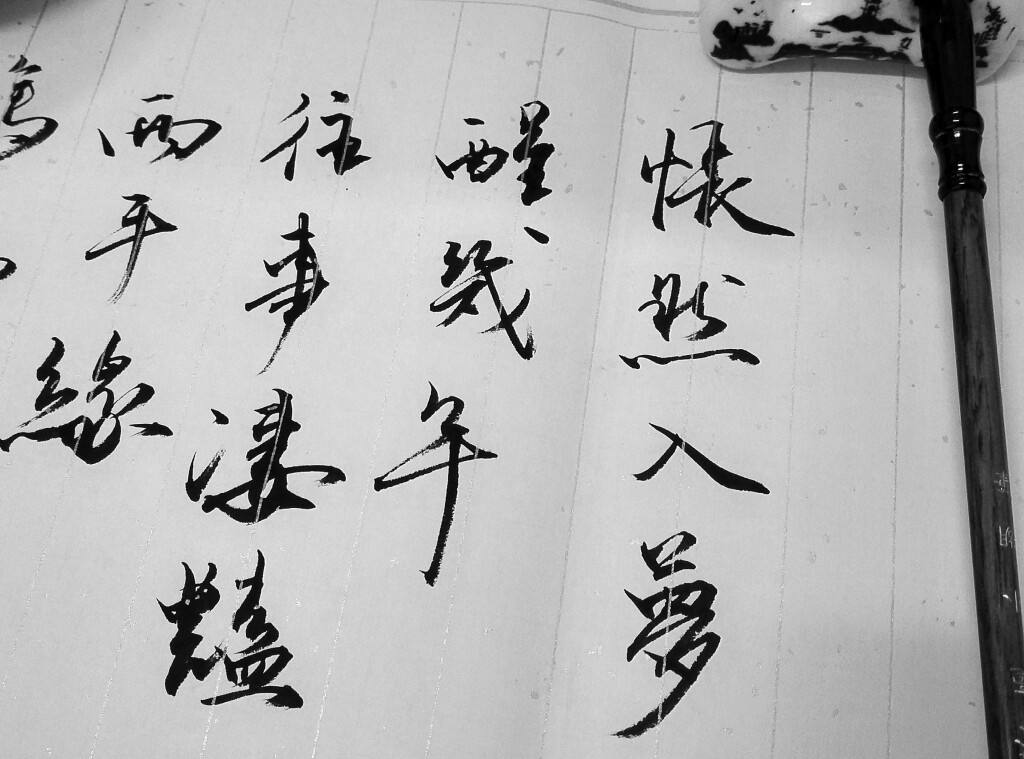 悵然入夢
醒幾年
往事淒豔
兩手緣